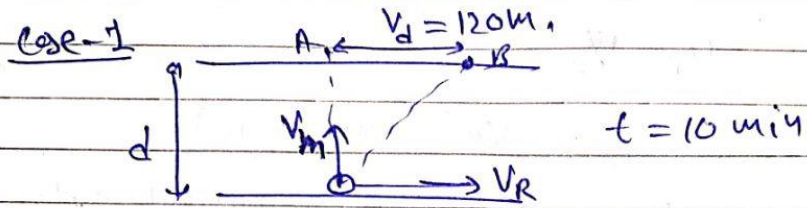 Case-1
A. V_d = 120m.
B
d V_m t = 10 min
V_R